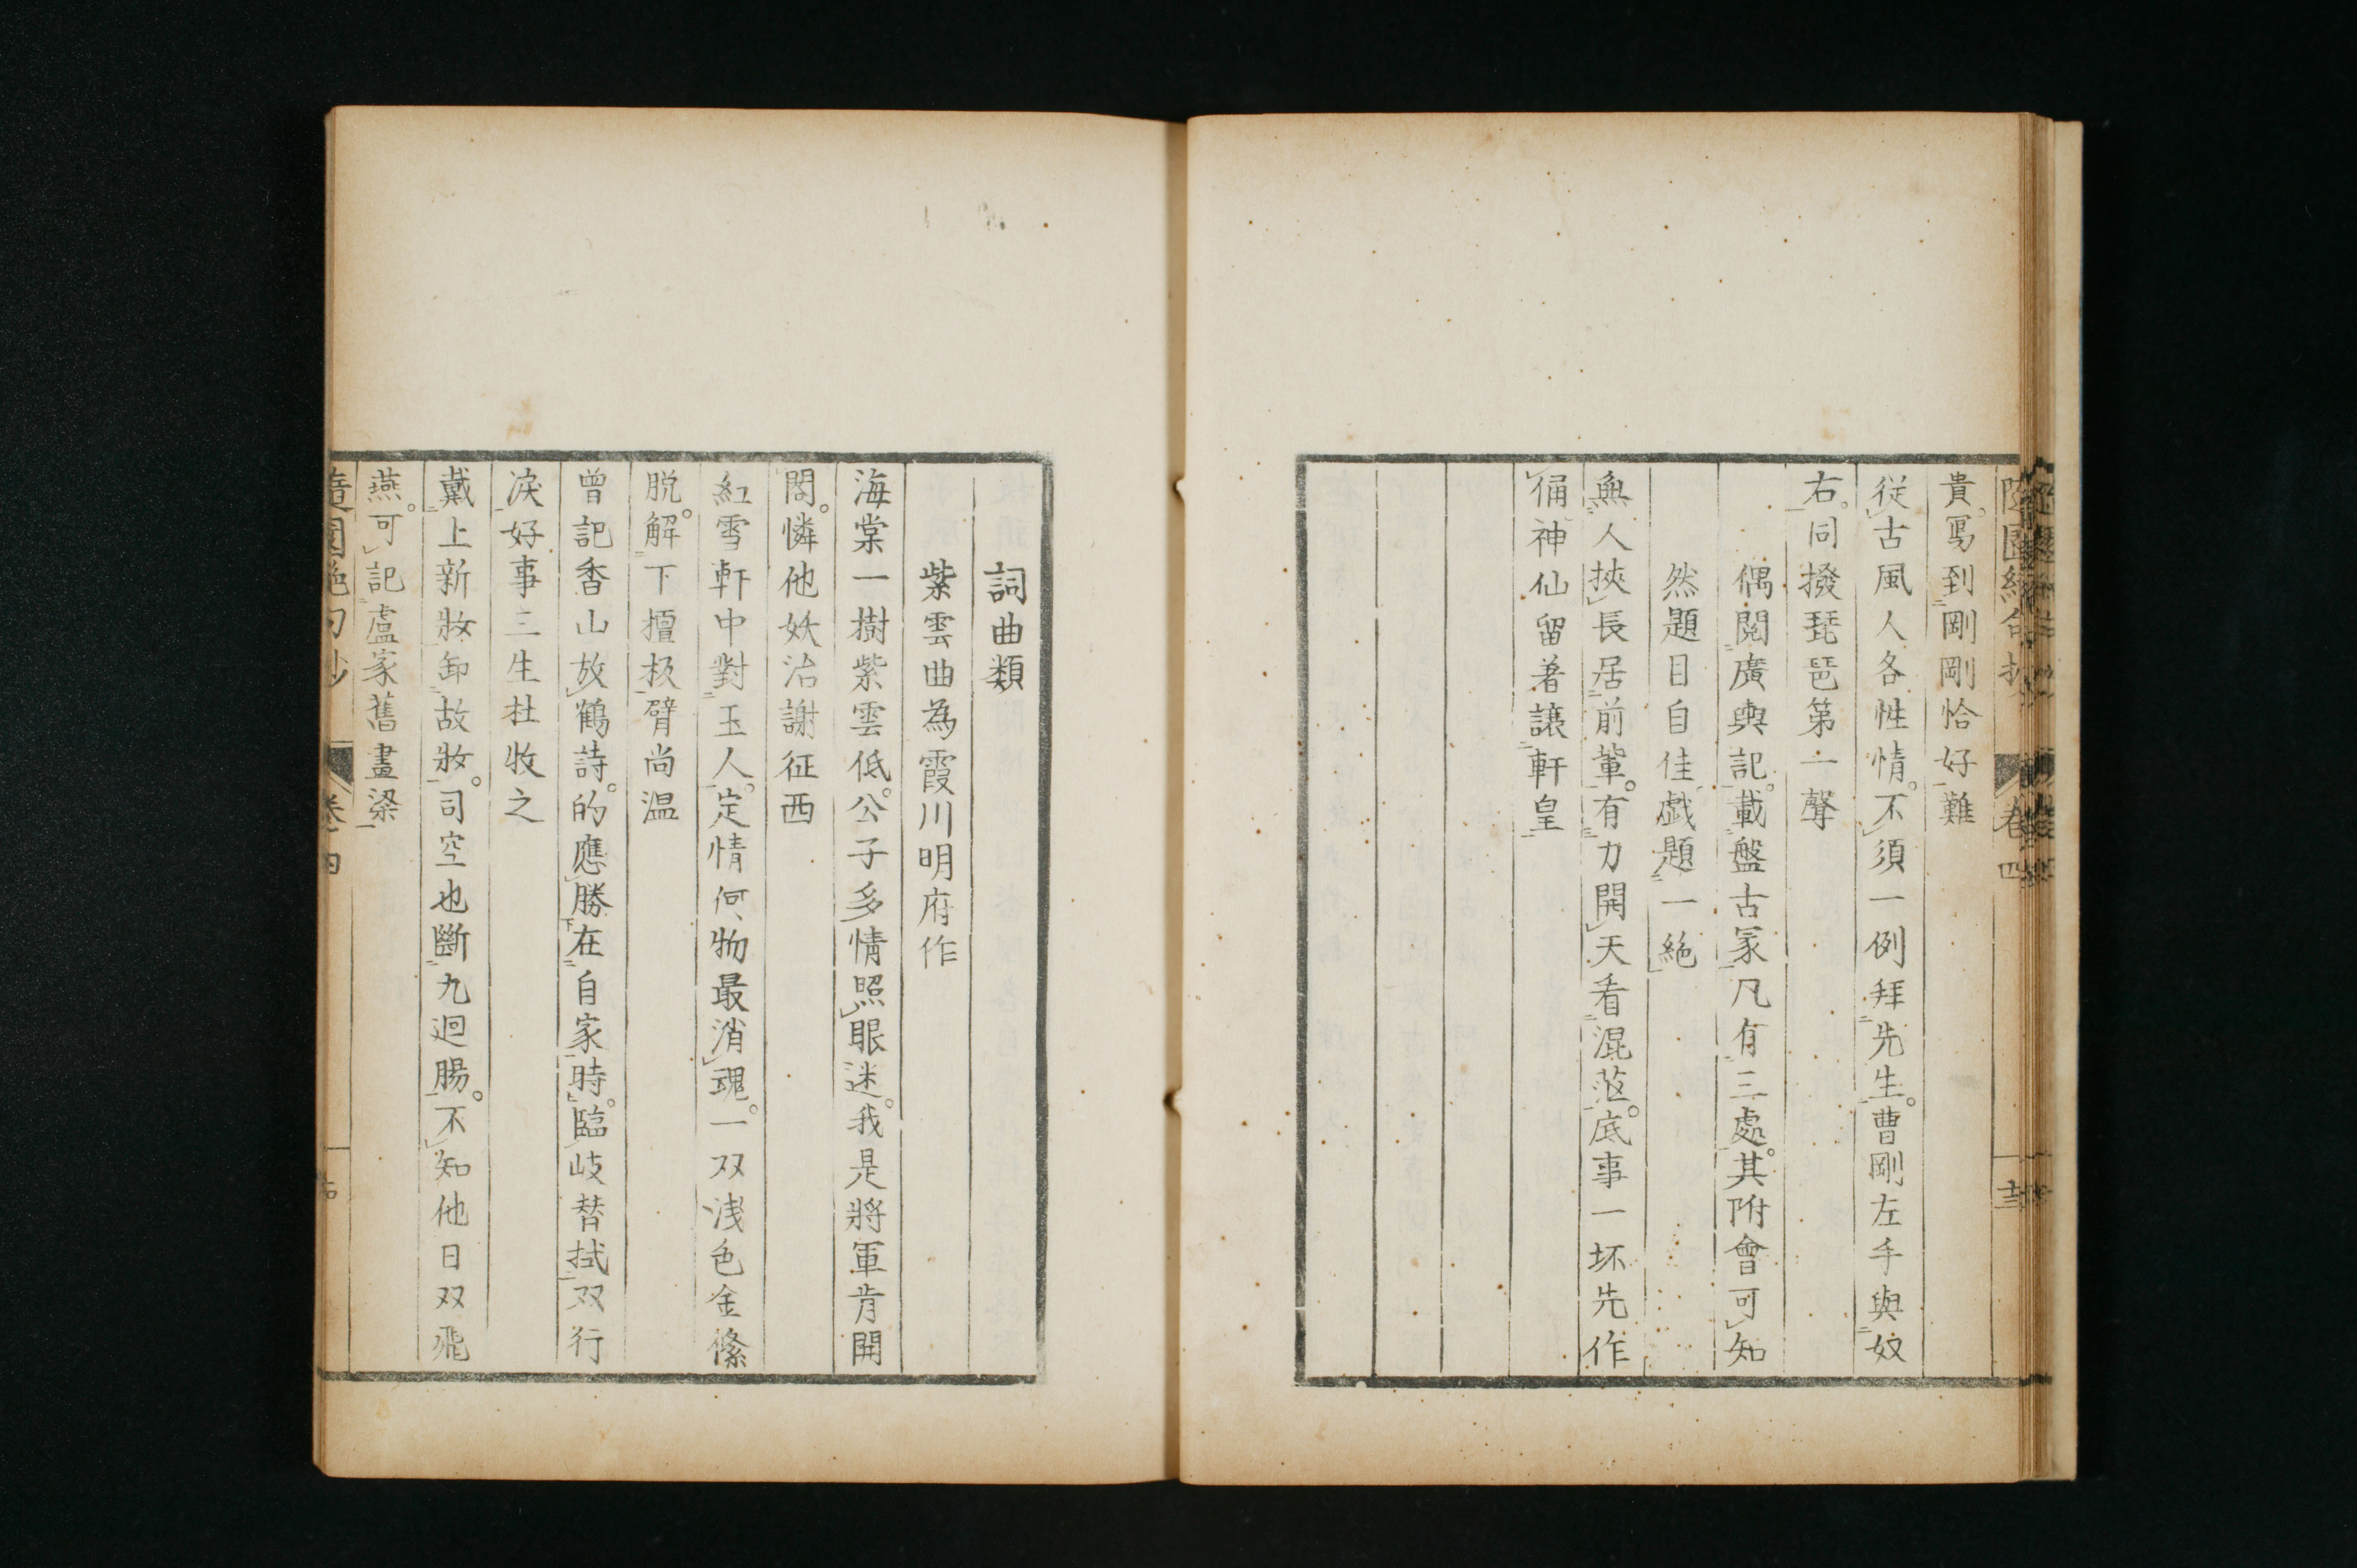 隨園絶句抄 卷四 十三
貴。寫到剛剛恰好難
従古風人各性情。不須一例拜先生。曹剛左手與奴
右。同撥琵琶第一聲
偶閱廣輿記。載盤古冢凡有三處。其附會可知
然題目自佳戯題一絶
無人挾長居前輩。有力開天看混茫。底事一坏先作
俑神仙留著讓軒皇
詞曲類
紫雲曲為霞川明府作
海棠一樹紫雲低。公子多情照眼迷。我是將軍肯開
閤。憐他妖冶謝征西
紅雪軒中對玉人。定情何物最消魂。一双浅色金絛
脱。解下擅板臂尚温
曾記香山放鶴詩。的應勝在自家時。臨歧替拭双行
淚好事三生杜牧之
戴上新妝卸故妝。司空也斷九迴腸。不知他日双飛
燕。可記盧家舊畫梁
隨園絶句抄 卷四